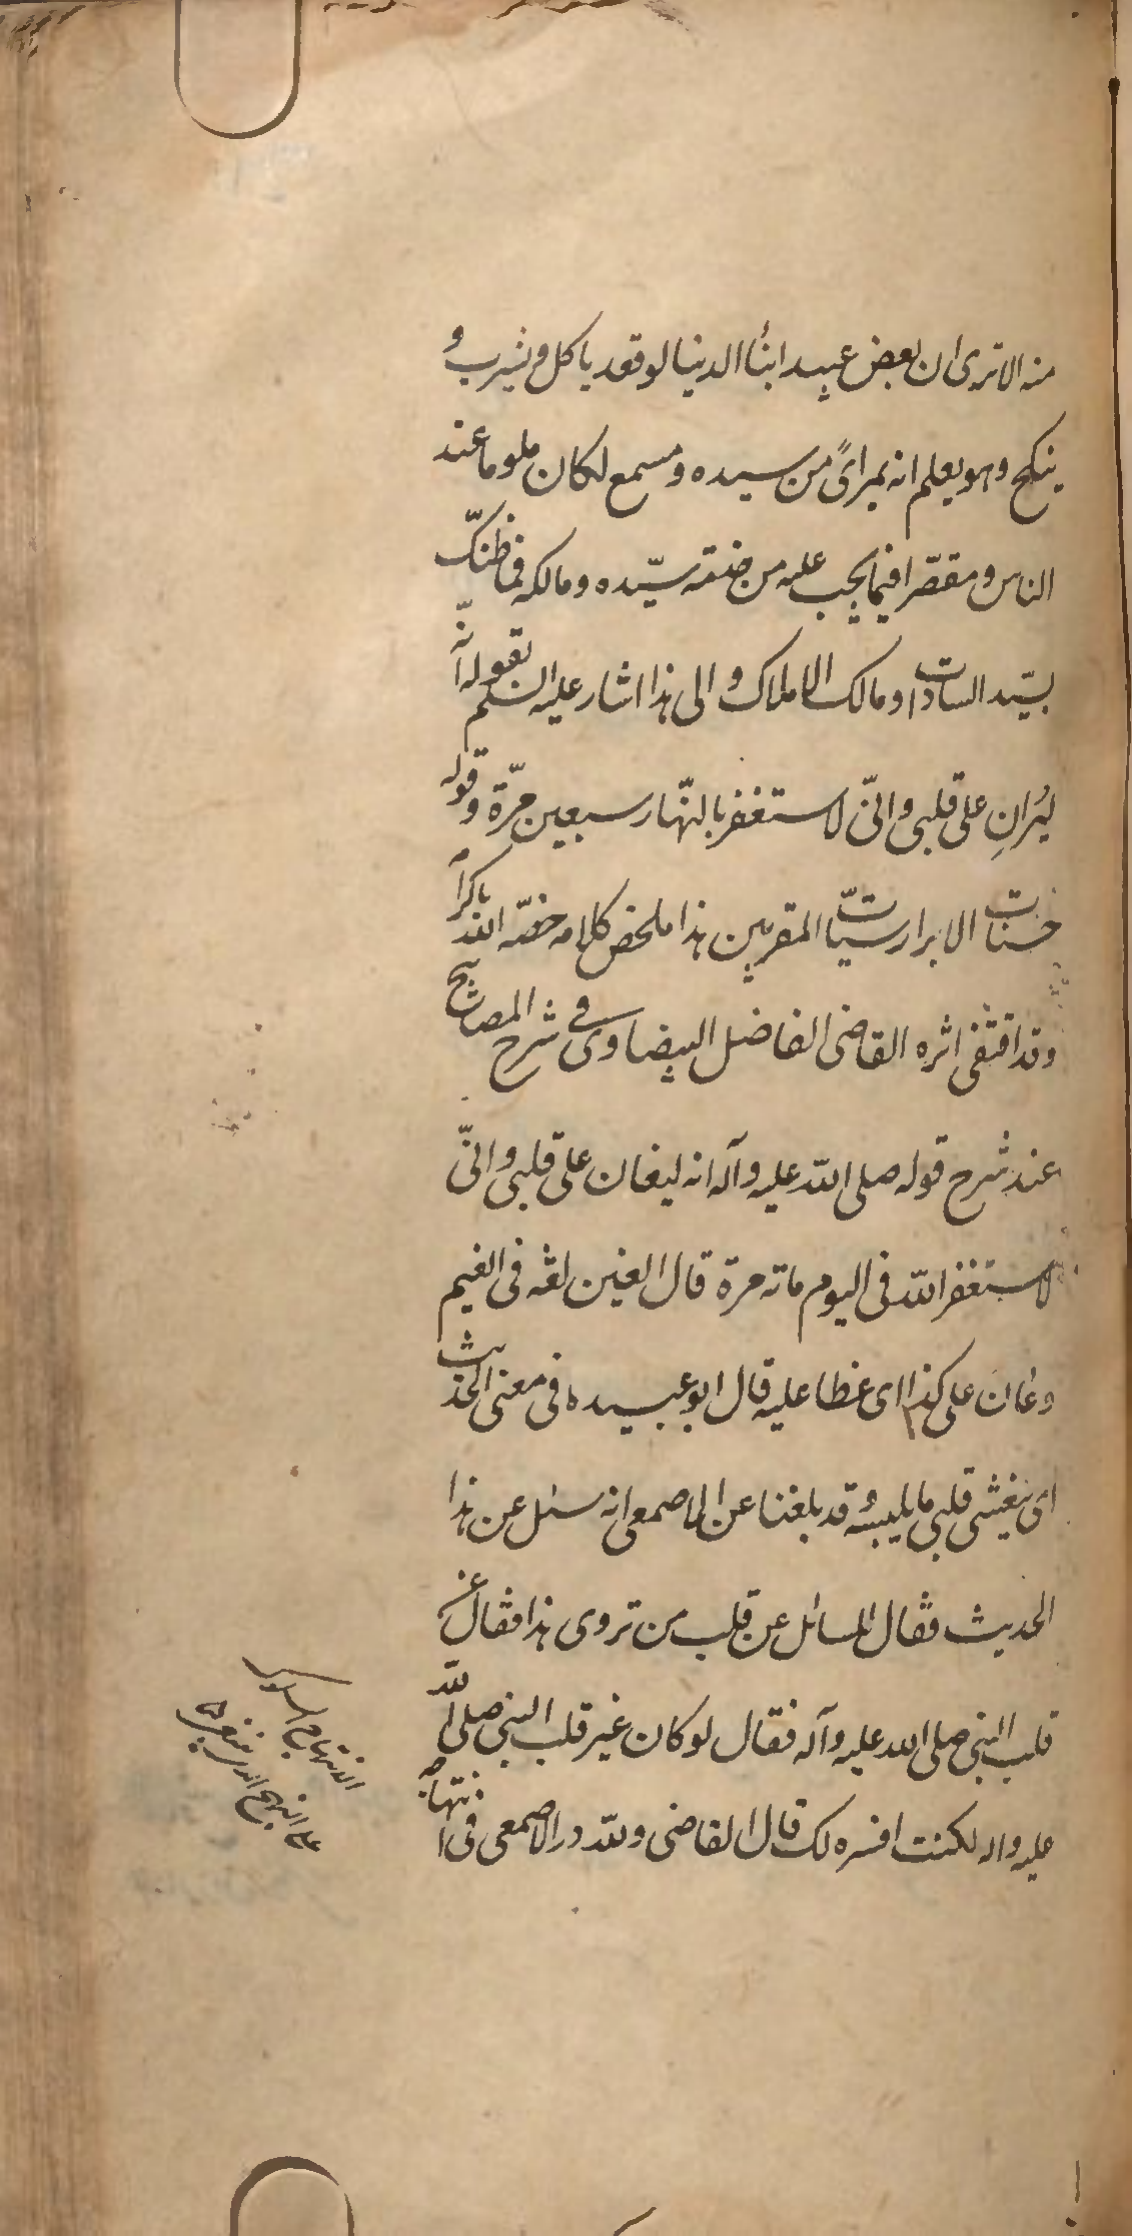 منه الا ترى ان بعض عبيد ابنأ الدنيا لو قعد ياكل و يشرب و
ينكح و هو يعلم انه بمرأىً من سيده و مسمع لكان ملوما عند
الناس و مقصّرا فيما يجب عليه من خدمة سيّده و مالكه فما ظنّك
بسيّد السادات و مالك الاملاك و الى هذا اشار عليه السلم بقوله انّه
ليُرانِ على قلبى و انّى لاستغفر بالنّهار سبعين مرّة و قوله
حسنات الابرار سيّات المقربين هذا ملخص كلامه خصّه الله باكرا
و قد اقتفى اثره القاضى الفاضل البيضاوى فى شرح المصابيح
عند شرح قوله صلى الله عليه و آله انه ليغان على قلبى و انّى
لاستغفر الله فى اليوم ماته مرة قال الغين لغة فى الغيم
و غان على كذا اى غطا عليه قال ابو عبيده فى معنى الحديث
اى يتغشى قلبى ما يلبسه و قد بلغنا عن الاصمعى انه سئل عن هذا
الحديث فقال للسائل عن قلب من تروى هذا فقال عن
قلب النبى صلى الله عليه و آله فقال لو كان غير قلب النبى صلى الله
عليه و اله لكنت افسره لك قال القاضى و لله در الاصمعى فى انتهاجه
الانتهاج السلوك
على النهج